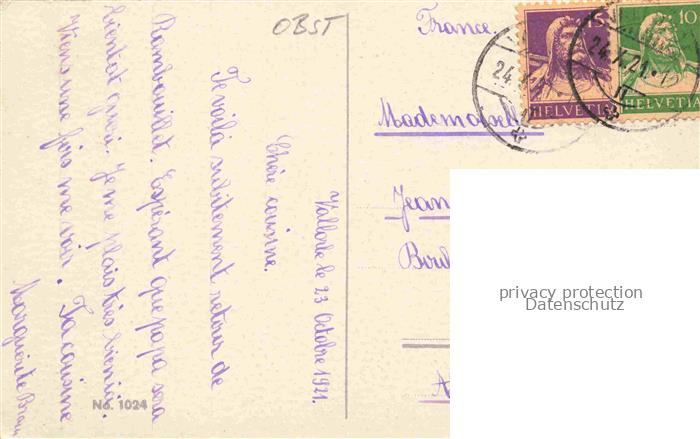 OBST
Vallorbe le 23 Octobre 1921.
Chère cousine.
Te voilà subitement retour de
Rambouillet. Espérant que papa sera
bientot guéri. Je me plais très bien ici.
Viens une fois me voir. Ta cousine
Marguerite
No. 1024
France.
15
HELVETIA
10
HELVETIA
24. X. 21
Mademoiselle
Jean
privacy protection
Datenschutz